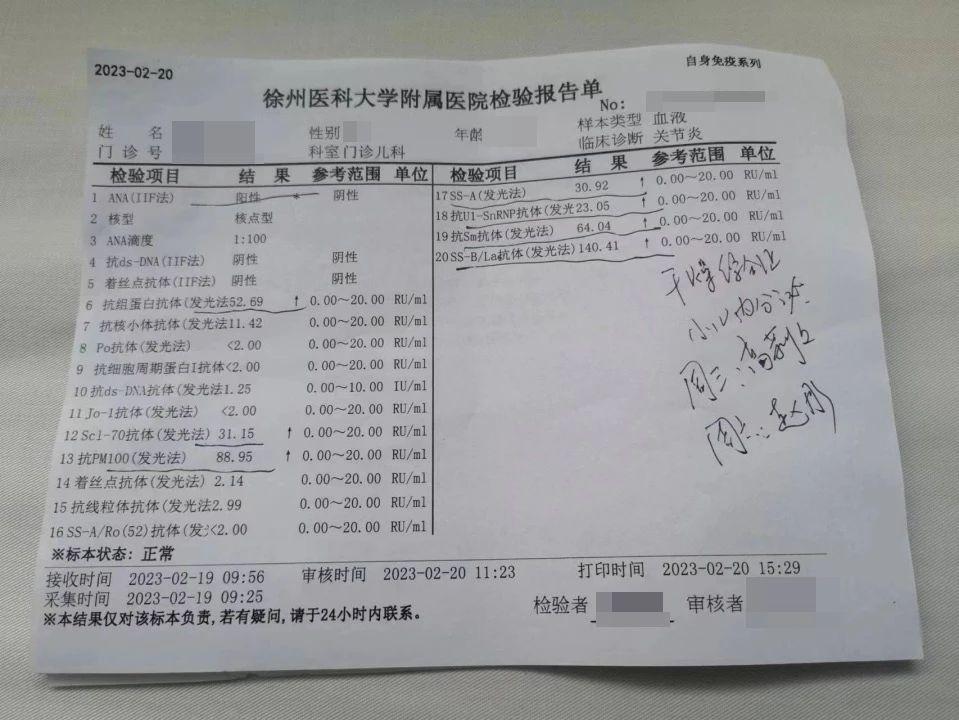 2023-02-20
自身免疫系列
徐州医科大学附属医院检验报告单
No:
姓 名 性别 年龄 样本类型 血液
门诊号 科室 门诊儿科 临床诊断 关节炎
检验项目 结 果 参考范围 单位
1 ANA(IIF法) 阳性 * 阴性
2 核型 核点型
3 ANA滴度 1:100
4 抗ds-DNA(IIF法) 阴性 阴性
5 着丝点抗体(IIF法) 阴性 阴性
6 抗组蛋白抗体(发光法52.69 ↑ 0.00~20.00 RU/ml
7 抗核小体抗体(发光法11.42 0.00~20.00 RU/ml
8 Po抗体(发光法) <2.00 0.00~20.00 RU/ml
9 抗细胞周期蛋白I抗体<2.00 0.00~20.00 RU/ml
10 抗ds-DNA抗体(发光法1.25 0.00~10.00 IU/ml
11 Jo-1抗体(发光法) <2.00 0.00~20.00 RU/ml
12 Scl-70抗体(发光法) 31.15 ↑ 0.00~20.00 RU/ml
13 抗PM100(发光法) 88.95 ↑ 0.00~20.00 RU/ml
14 着丝点抗体(发光法) 2.14 0.00~20.00 RU/ml
15 抗线粒体抗体(发光法2.99 0.00~20.00 RU/ml
16 SS-A/Ro(52)抗体(发<2.00 0.00~20.00 RU/ml
检验项目 结 果 参考范围 单位
17 SS-A(发光法) 30.92 ↑ 0.00~20.00 RU/ml
18 抗U1-SnRNP抗体(发光23.05 ↑ 0.00~20.00 RU/ml
19 抗Sm抗体(发光法) 64.04 ↑ 0.00~20.00 RU/ml
20 SS-B/La抗体(发光法)140.41 ↑ 0.00~20.00 RU/ml
干燥综合征
小儿内分泌
周三:高
周六:赵
※标本状态: 正常
接收时间 2023-02-19 09:56 审核时间 2023-02-20 11:23 打印时间 2023-02-20 15:29
采集时间 2023-02-19 09:25 检验者 审核者
※本结果仅对该标本负责,若有疑问,请于24小时内联系。